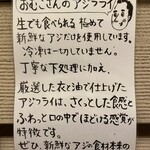 おむこさんのアジフライ
生でも食べられる 極めて
新鮮なアジだけを使用しています。
冷凍は一切していません。
丁寧な下処理に加え、
厳選した衣と油で仕上げた
アジフライは、さくっとした食感と
ふわっと口の中でほどける感覚が
特徴です。
ぜひ、新鮮なアジの食材本来の